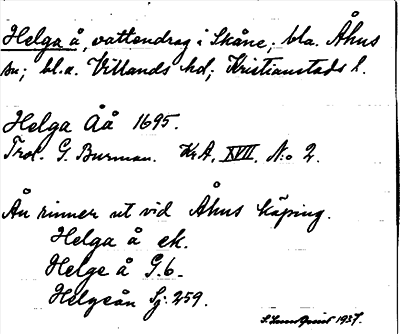 Helga å, vattendrag i Skåne; bl.a. Åhus
sn; bl.a. Villands hd; Kristianstads l.
Helga Åå 1695.
Trol. G. Burman. KrA, XVII, N:o 2.
Ån rinner ut vid Åhus köping.
Helga å ek.
Helge å G.b.
Helgeån Sj: 259.
1937.